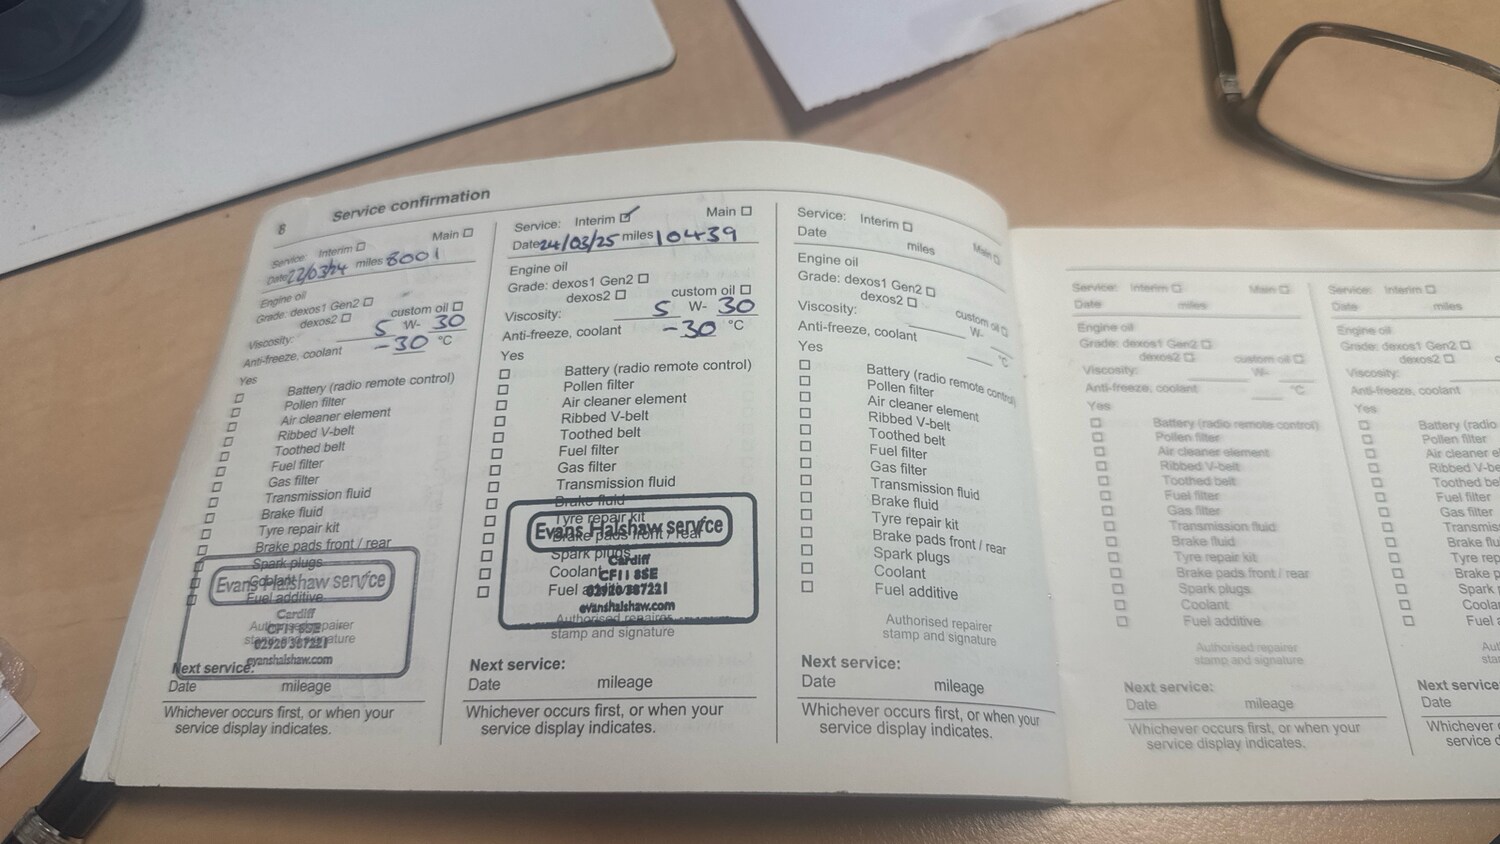 8 Service confirmation
Service: Interim Main
Date 22/03/24 miles 8001
Engine oil
Grade: dexos1 Gen2
dexos2 custom oil
Viscosity: 5 W- 30
Anti-freeze, coolant -30 °C
Yes
Battery (radio remote control)
Pollen filter
Air cleaner element
Ribbed V-belt
Toothed belt
Fuel filter
Gas filter
Transmission fluid
Brake fluid
Tyre repair kit
Brake pads front / rear
Spark plugs
Coolant
Fuel additive
Evans Halshaw service
Cardiff
CF11 8SE
02920 387221
evanshalshaw.com
Authorised repairer
stamp and signature
Next service:
Date mileage
Whichever occurs first, or when your
service display indicates.
Service: Interim Main
Date 24/03/25 miles 10439
Engine oil
Grade: dexos1 Gen2
dexos2 custom oil
Viscosity: 5 W- 30
Anti-freeze, coolant -30 °C
Yes
Battery (radio remote control)
Pollen filter
Air cleaner element
Ribbed V-belt
Toothed belt
Fuel filter
Gas filter
Transmission fluid
Brake fluid
Tyre repair kit
Brake pads front / rear
Spark plugs
Coolant
Fuel additive
Evans Halshaw service
Cardiff
CF11 8SE
02920 387221
evanshalshaw.com
Authorised repairer
stamp and signature
Next service:
Date mileage
Whichever occurs first, or when your
service display indicates.
Service: Interim Main
Date miles
Engine oil
Grade: dexos1 Gen2
dexos2 custom oil
Viscosity: W-
Anti-freeze, coolant °C
Yes
Battery (radio remote control)
Pollen filter
Air cleaner element
Ribbed V-belt
Toothed belt
Fuel filter
Gas filter
Transmission fluid
Brake fluid
Tyre repair kit
Brake pads front / rear
Spark plugs
Coolant
Fuel additive
Authorised repairer
stamp and signature
Next service:
Date mileage
Whichever occurs first, or when your
service display indicates.
Service: Interim Main
Date miles
Engine oil
Grade: dexos1 Gen2
dexos2 custom oil
Viscosity: W-
Anti-freeze, coolant °C
Yes
Battery (radio remote control)
Pollen filter
Air cleaner element
Ribbed V-belt
Toothed belt
Fuel filter
Gas filter
Transmission fluid
Brake fluid
Tyre repair kit
Brake pads front / rear
Spark plugs
Coolant
Fuel additive
Authorised repairer
stamp and signature
Next service:
Date mileage
Whichever occurs first, or when your
service display indicates.
Service: Interim
Date miles
Engine oil
Grade: dexos1 Gen2
dexos2
Viscosity:
Anti-freeze, coolant
Yes
Battery (radio
Pollen filter
Air cleaner e
Ribbed V-b
Toothed be
Fuel filter
Gas filter
Transmis
Brake flu
Tyre rep
Brake p
Spark
Coola
Fuel a
Aut
sta
Next service:
Date
Whichever
service d